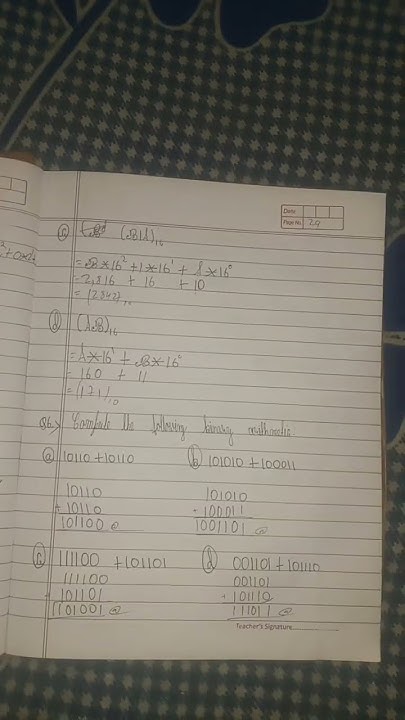 Date
Page No. 29
(c) (B1A)₁₆
= B*16² + 1*16¹ + A*16⁰
= 2,816 + 16 + 10
= (2842)₁₀
(d) (AB)₁₆
= A*16¹ + B*16⁰
= 160 + 11
= (171)₁₀
Q6.> Compute the following binary arithmetic.
(a) 10110 + 10110 (b) 101010 + 100011
10110 101010
+ 10110 + 100011
101100 1001101
(c) 111100 + 101101 (d) 001101 + 101110
111100 001101
+ 101101 + 101110
1101001 111011
Teacher's Signature